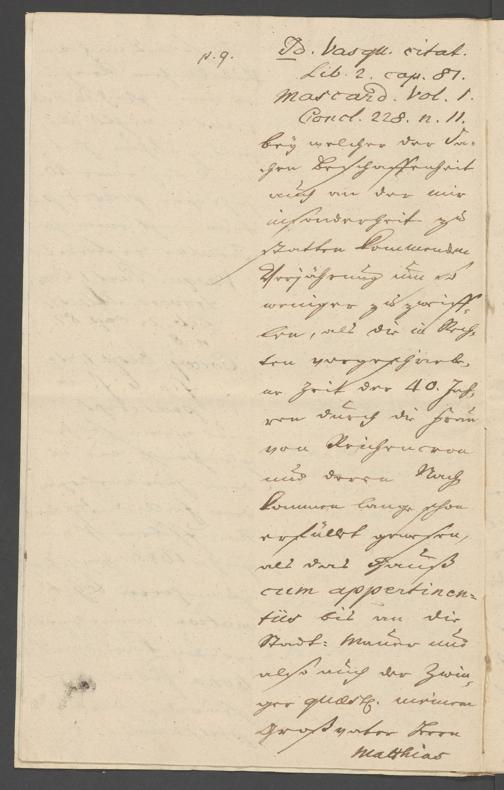 p. 9.
Id. Vasqu. citat.
Lib. 2. cap. 81.
Mascard. Vol. 1.
Concl. 228. n. 11.
bey welcher der Sa-
chen Beschaffenheit
auch an der mir
insonderheit zu
statten kommenden
Verjährung um so
weniger zu zweiff-
len, als die in Rech-
ten vorgeschriebe-
ne Zeit der 40. Jah-
ren durch die Frau
von Reichencron
und deren Nach
kommen lange schon
erfüllet gewesen,
als das Hauß
cum appertinen-
tiis bis an die
Stadt-Mauer und
also auch der Zwin-
ger quæst. meinem
Großvater Herrn
Matthias